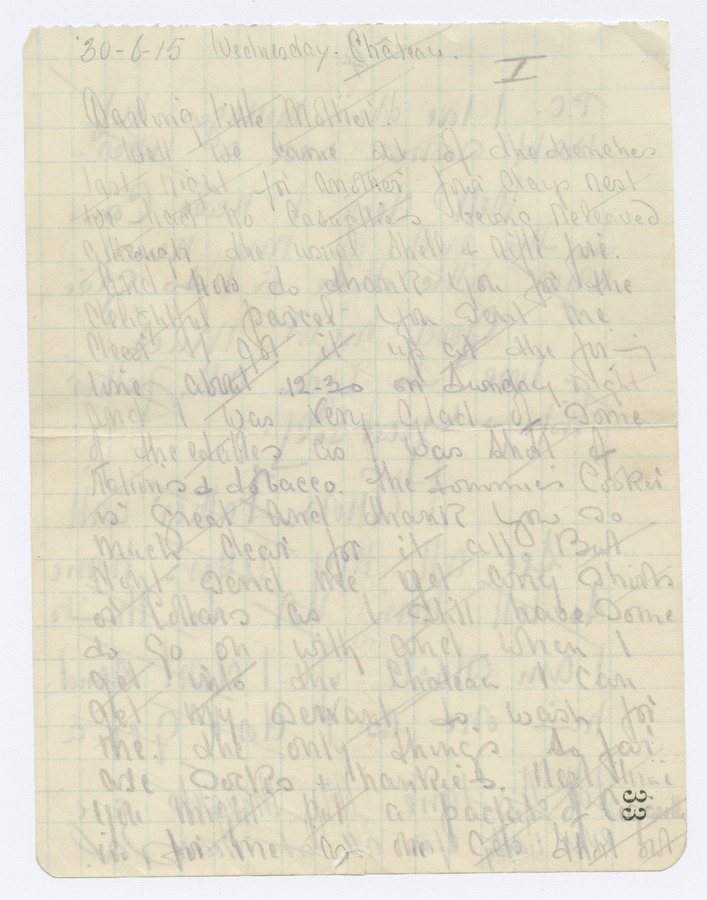 30-6-15 Wednesday. Chateau.
I
Darling little Mother.
Well we came out of the trenches
last night for another four days rest
we had no casualties being releaved
although the usual shell & rifle fire.
And now do thank you for the
delightful parcel you sent me
dear I got it up at the firing
line about 12-30 on Sunday night
and I was very glad of some
of the eatables as I was short of
rations & tobacco. The Tommies Cooker
is great and thank you so
much dear for it all. But
dont send me yet any shirts
or Collars as I still have some
to go on with and when I
get into the Chateau I can
get my servant to wash for
me. the only things so far
are socks & hankies. Next time
you might put a packet of
in for me as one gets short but
33